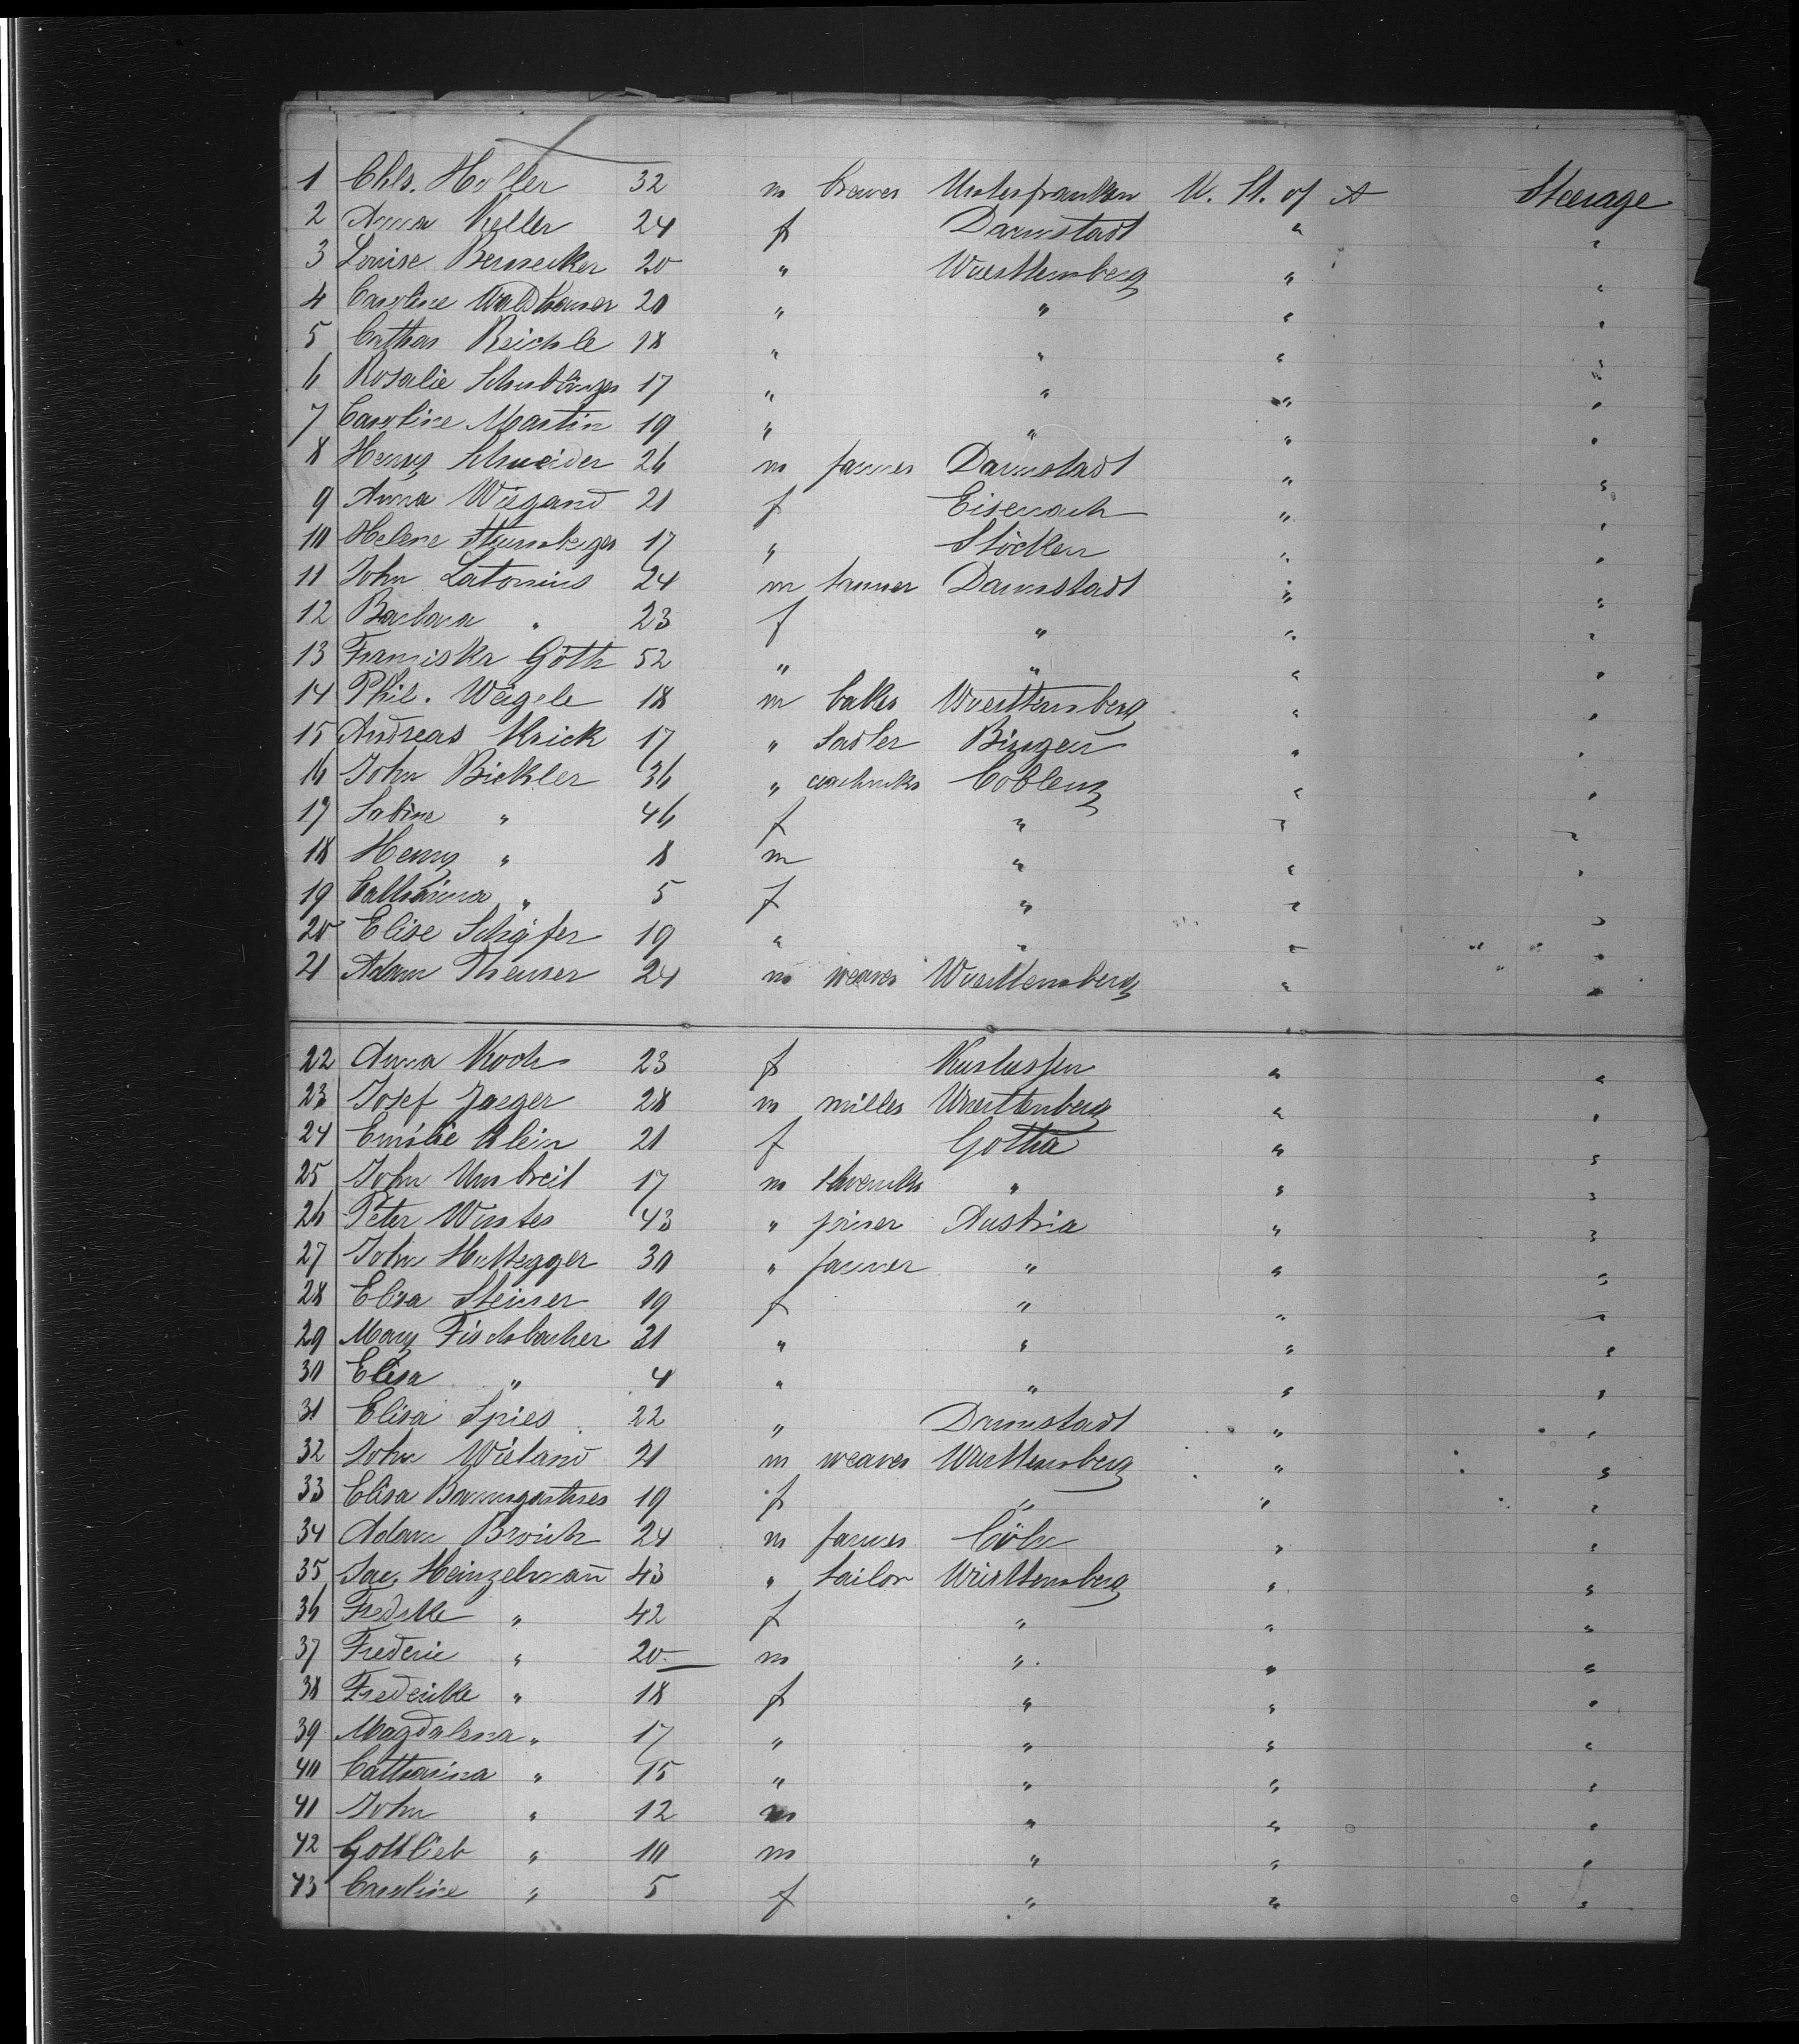 1 Chls. Holler 32 m brewer Unterfranken U. St. of A Steerage
2 Anna Keller 24 f Darmstadt " "
3 Louise Bernecker 20 " Wuerttemberg " "
4 Caroline Waldhauser 20 " " " "
5 Cathar Reichle 18 " " " "
6 Rosalie 17 " " " "
7 Caroline Martin 19 " " " "
8 Henry Schneider 26 m farmer Darmstadt " "
9 Anna Wiegand 21 f Eisenach " "
10 Helene 17 " Stöcken " "
11 John Latonius 24 m tanner Darmstadt " "
12 Barbara " 23 f " " "
13 Franziska Göth 52 " " " "
14 Phil. Weigele 18 m baker Wuerttemberg " "
15 Andreas Krick 17 " Sadler Bingen " "
16 John Bickler 36 " Coblenz " "
17 Sabine " 46 f " " "
18 Henry " 8 m " " "
19 Catharina " 5 f " " "
20 Elise Schäfer 19 " " " "
21 Adam Theurer 24 m weaver Wuerttemberg " "
22 Anna Koch 23 f Kurhessen " "
23 Josef Jaeger 28 m miller Wuerttenberg " "
24 Emilie Klein 21 f Gotha " "
25 John Umbreit 17 m " " "
26 Peter Winter 43 " joiner Austria " "
27 John Huttegger 30 " farmer " " "
28 Elisa Steiner 19 f " " "
29 Mary Fischbacher 21 " " " "
30 Elisa " 4 " " " "
31 Elisa Spies 22 " Darmstadt " "
32 John Wieland 21 m weaver Wurttemberg " "
33 Elisa Baumgartner 19 f " " "
34 Adam Broich 24 m farmer Cöln " "
35 Jac. Heinzelmañ 43 " tailor Wurttemberg " "
36 Fredrke " 42 f " " "
37 Frederic " 20 m " " "
38 Frederike " 18 f " " "
39 Magdalena " 17 " " " "
40 Catharina " 15 " " " "
41 John " 12 m " " "
42 Gottlieb " 10 m " " "
43 Caroline " 5 f " " "